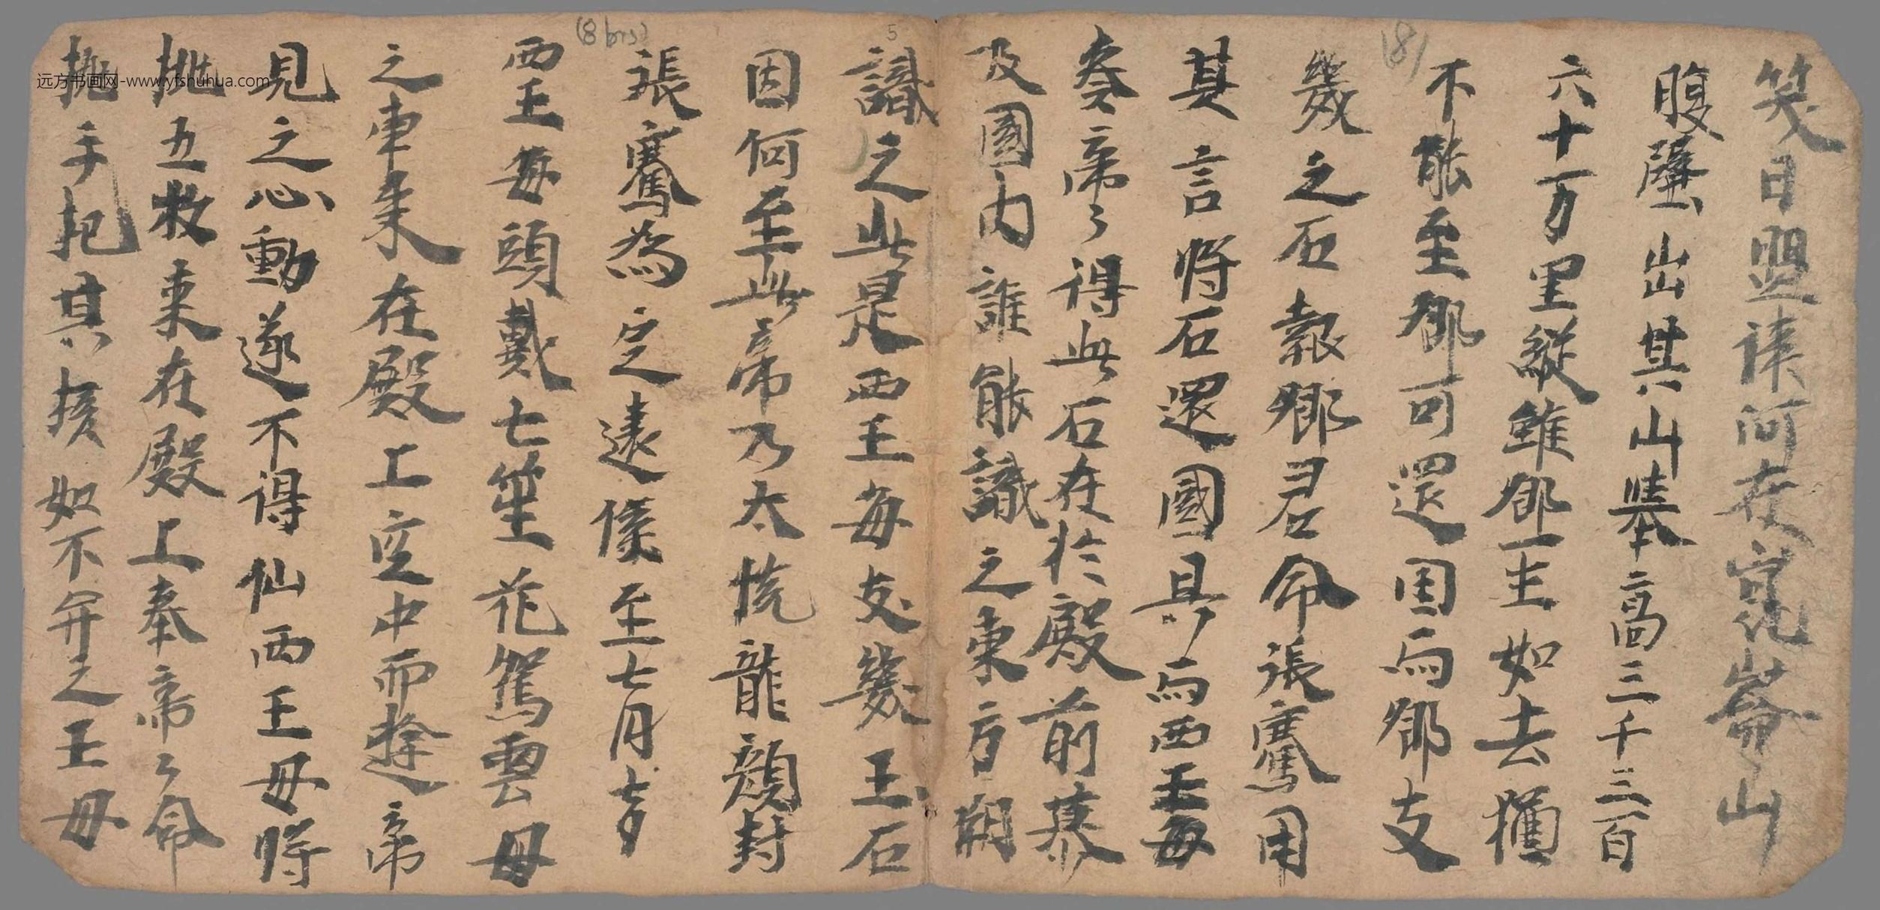 笑曰盟津河在崑崙山
腹壁出其山舉高三千三百
六十万里縱雖卿一生如去猶
不能至卿可還因為卿支
幾之石報卿君命張騫用
其言將石還國具為西王母
奏帝々得此石在於殿前募
及國內誰能識之東方朔
識之此是西王母支幾玉石
因何至此帝乃大悅龍顏封
張騫為定遠侯至七月七夕
西王母頭戴七笙花駕雲母
之車來在殿上空中而遊帝
見之心動遂不得仙西王母將
桃五枚來在殿上奉帝々命
手把其核如不弃之王母
(8)
(8 bis)
5
远方书画网-www.yfshuhua.com